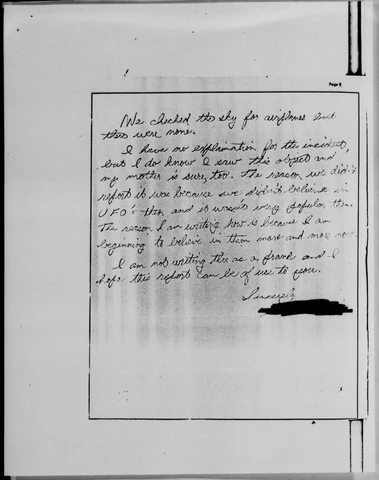 Page 2
We checked the sky for airplanes but
there were none.
I have no explanation for the incident,
but I do know I saw this object and
my mother is sure, too. The reason we didn't
report it was because we didn't believe in
UFO's then and it wasn't very popular then.
The reason I am writing now is because I am
beginning to believe in them more and more now.
I am not writing this as a prank and I
hope this report can be of use to you.
Sincerely